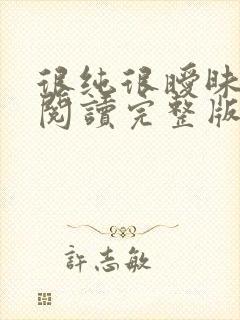 很純很曖昧
閱讀完整版
許志敏